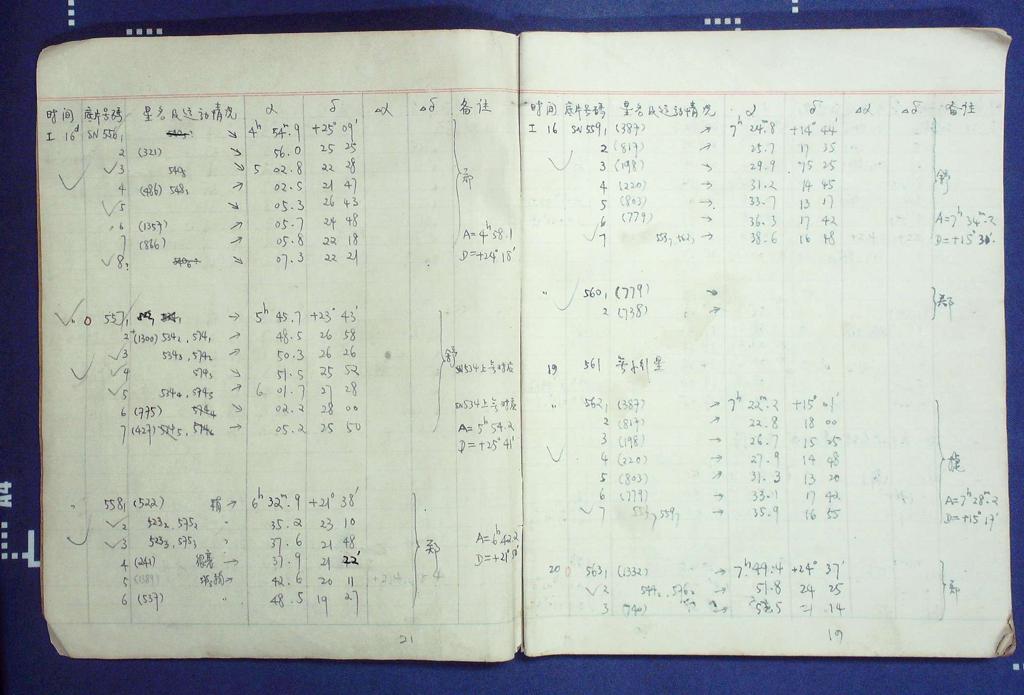 时间 底片号码 星名及运动情况 α δ Δα Δδ 备注
I 16ᵈ SN 556₁ ↘ 4ʰ 54ᵐ.9 +25° 09′
2 (321) ↘ 56.0 25 25
✓3 540₅ → 5 02.8 22 28
4 (486) 548₂ → 02.5 21 47
✓5 → 05.3 26 43
6 (1357) → 05.7 24 48
7 (866) → 05.8 22 18
A=4ʰ58.1
✓8 → 07.3 22 21
D=+24°18′
557₁ → 5ʰ 45.7 +23° 43′
2 (1300) 534₂, 574₁ → 48.5 26 58
✓3 534₃, 574₂ → 50.3 26 26
舒
✓4 574₃ → 51.5 25 52
SN534上无对应
✓5 534₄, 574₅ → 6 01.7 27 28
6 (775) 574₄ → 02.2 28 00
SN534上无对应
7 (427) 574₆ → 05.2 25 50
A=5ʰ54.2
D=+25°41′
558₁ (522) 稍→ 6ʰ 32ᵐ.9 +21° 38′
✓2 523₂, 575₂ " 35.2 23 10
✓3 523₃, 575₃ " 37.6 21 48
郑
A=6ʰ42.2
4 (241) → 37.9 21 22′
5 → 42.6 20 11
6 (537) " 48.5 19 27
21
时间 底片号码 星名及运动情况 α δ Δα Δδ 备注
I 16 SN 559₁ (387) → 7ʰ 24ᵐ.8 +14° 44′
2 (817) → 25.7 17 35
✓3 (198) → 29.9 15 25
4 (220) → 31.2 14 45
舒
5 (803) → 33.7 13 17
6 (779) → 36.3 17 42
A=7ʰ34ᵐ.2
✓7 → 38.6 16 48
D=+15°30′
" 560₁ (779) ↘
2 (738)
郑
19 561 无小行星
" 562₁ (387) → 7ʰ 22ᵐ.2 +15° 01′
2 (817) → 22.8 18 00
3 (198) → 26.7 15 25
4 (220) → 27.9 14 48
5 (803) → 31.3 13 20
6 (779) → 33.1 17 42
A=7ʰ28ᵐ.2
✓7 559₇ → 35.9 16 55
D=+15°17′
20 563₁ (1332) → 7ʰ 49.4 +24° 37′
✓2 → 51.8 24 25
3 (740) → 14
19
A4